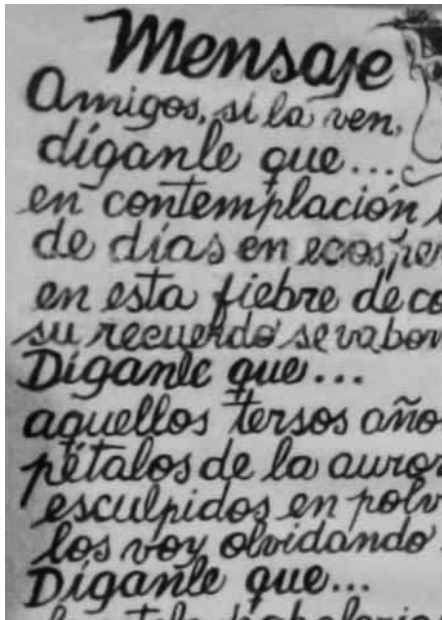 Mensaje
Amigos, si la ven,
díganle que...
en contemplación
de días en ecos
en esta fiebre de
su recuerdo se va
Díganle que...
aquellos tersos
pétalos de la
esculpidos en
los voy olvidando
Díganle que...